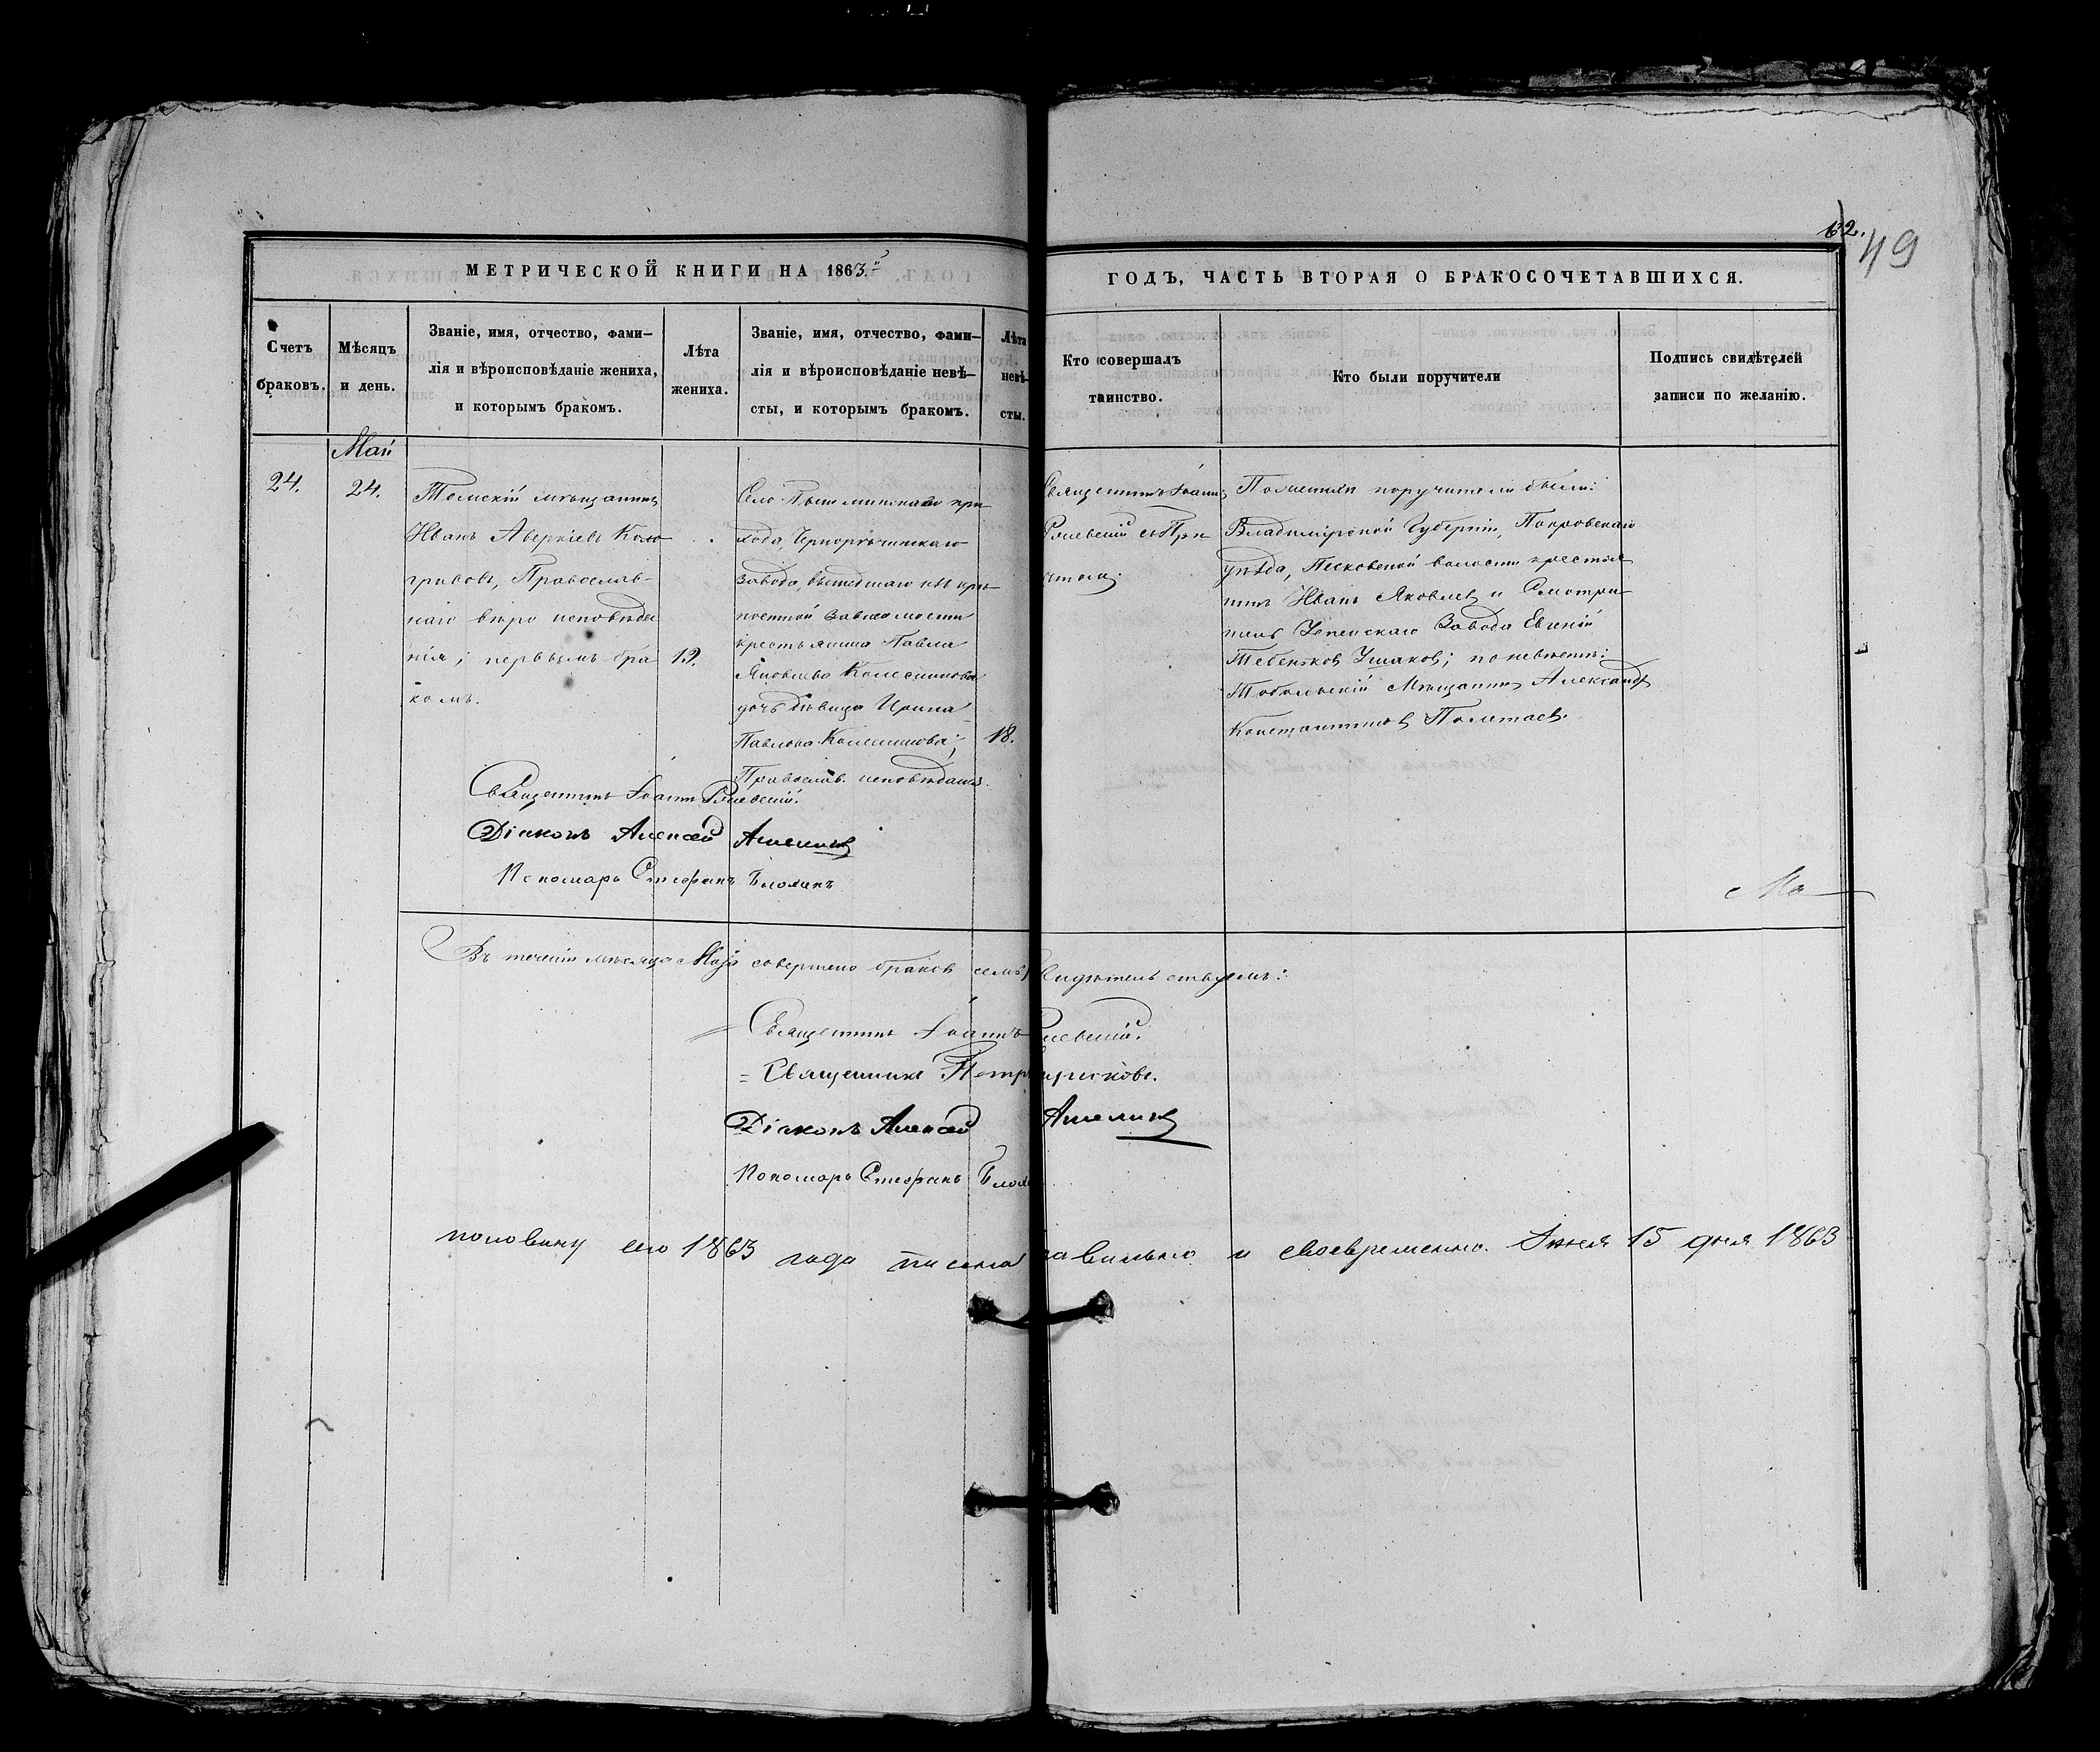 62.
49
МЕТРИЧЕСКОЙ КНИГИ НА 1863.й
ГОДЪ, ЧАСТЬ ВТОРАЯ О БРАКОСОЧЕТАВШИХСЯ.
Счетъ
браковъ.
Мѣсяцъ
и день.
Званіе, имя, отчество, фами-
лія и вѣроисповѣданіе жениха,
и которымъ бракомъ.
Лѣта
жениха.
Званіе, имя, отчество, фами-
лія и вѣроисповѣданіе невѣ-
сты, и которымъ бракомъ.
Лѣта
невѣ-
сты.
Кто совершалъ
таинство.
Кто были поручители
Подпись свидѣтелей
записи по желанію.
Май
24.
24.
Томскій мѣщанинъ
Иванъ Аверкіевъ Коло
гривовъ, Православ-
наго вѣро исповѣда
нія; первымъ бра
комъ.
19.
Село Пышминскаго при
хода,
завода, вышедшаго изъ крѣ
постной зависимости
крестьянина Павла
Яковлева Колесникова
дочь дѣвица Ирина
Павлова Колесникова;
Православ. исповѣданія.
18.
Священникъ Іоаннъ
съ При
чтомъ.
По женихѣ поручители были:
Владимірской Губерніи, Покровскаго
уѣзда, волости крестья
нинъ Иванъ Яковлевъ и Смотри
тель завода Евгеній
Тебеньковъ Ушаковъ; по невѣстѣ:
Тобольскій Мѣщанинъ Александръ
Константиновъ Полетаевъ.
Священникъ Іоаннъ
Діаконъ Алексѣй
Пономарь Стефанъ
Ма
Въ теченіи мѣсяца Маія совершено браковъ семь свидѣтельствуемъ:
Священникъ Іоаннъ
Священникъ Петръ
Діаконъ Алексѣй
Пономарь Стефанъ
половину сего 1863 года писана правильно и своевременно. Іюня 15 дня 1863